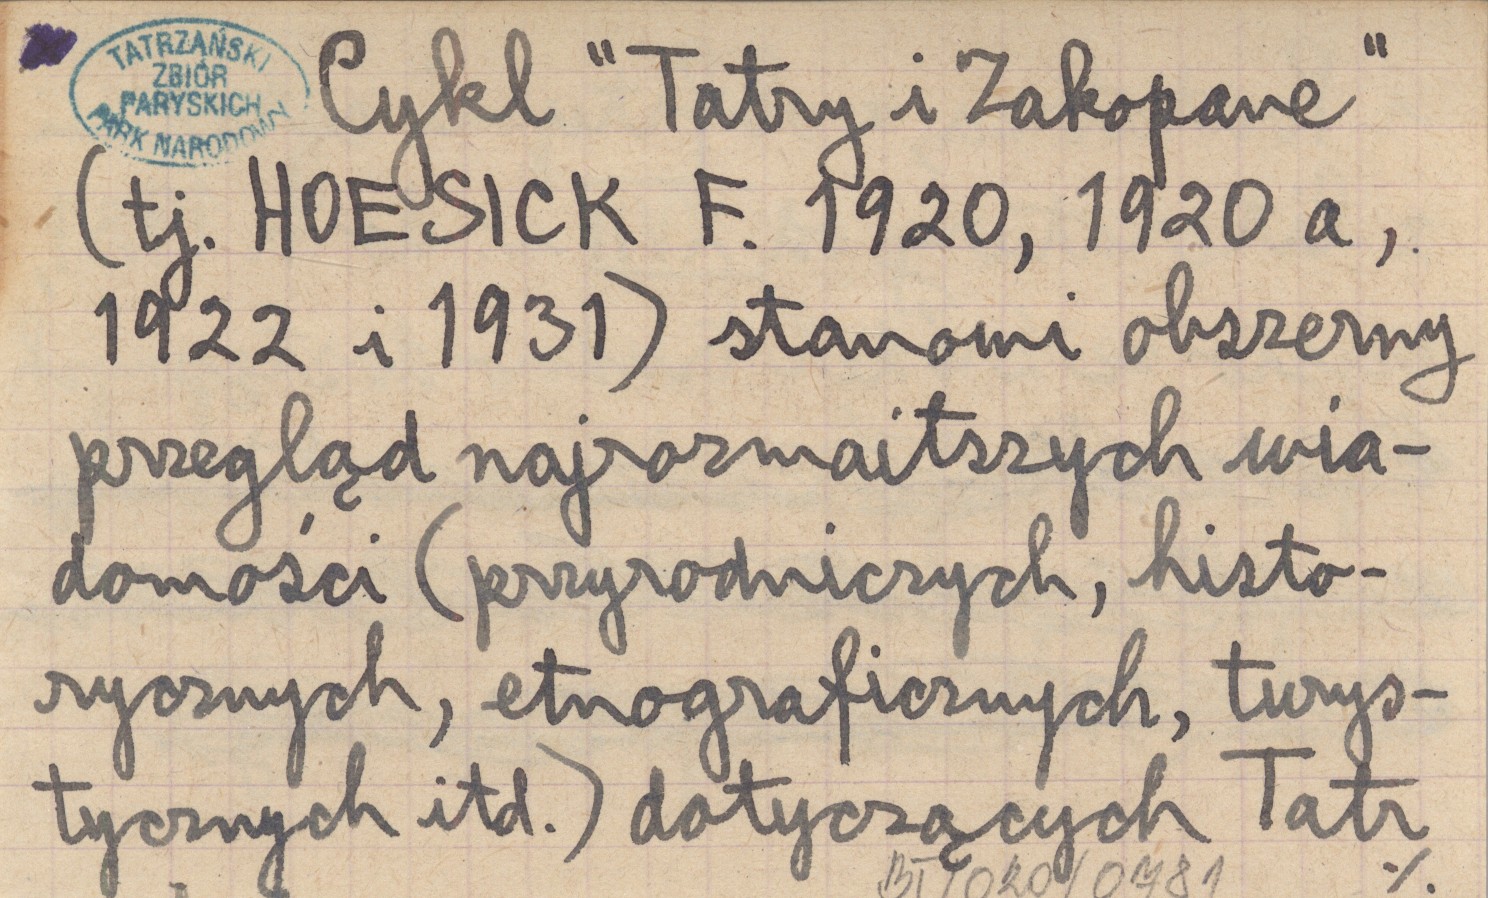 TATRZAŃSKI
ZBIÓR
PARYSKICH
PARK NARODOWY
Cykl "Tatry i Zakopane"
(tj. HOESICK F. 1920, 1920 a,
1922 i 1931) stanowi obszerny
przegląd najrozmaitszych wia-
domości (przyrodniczych, histo-
rycznych, etnograficznych, turys-
tycznych itd.) dotyczących Tatr
BT/020/0781
·/.